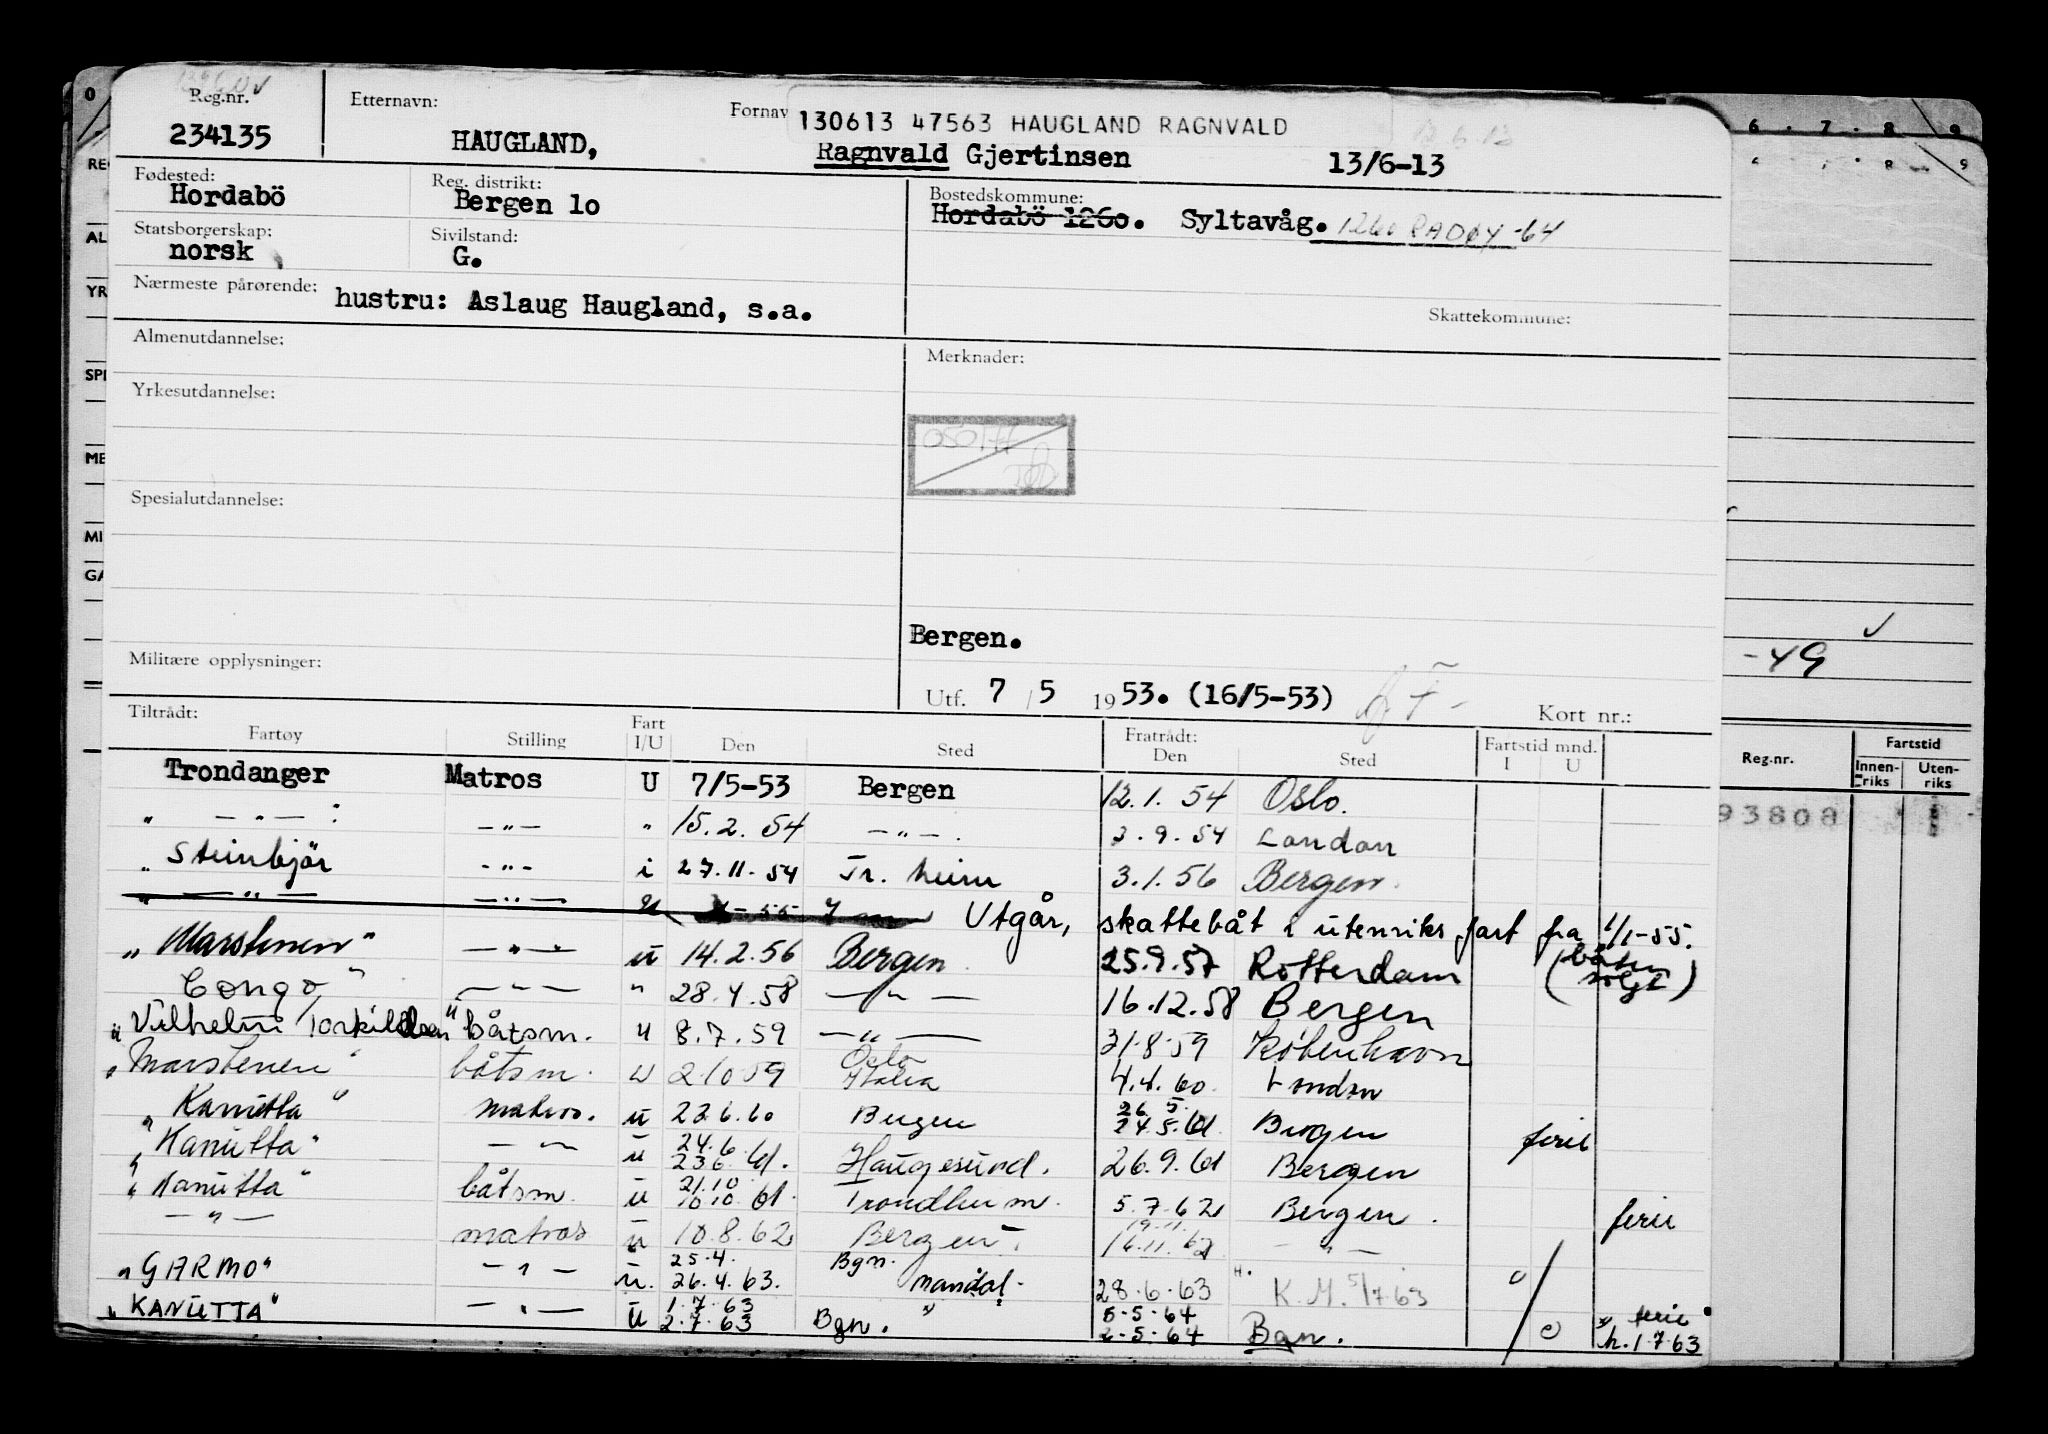 Reg.nr. Etternavn: Fornav 130613 47563 HAUGLAND RAGNVALD
234135 HAUGLAND, Ragnvald Gjertinsen 13/6-13
Fødested: Reg. distrikt: Bostedskommune:
Hordabö Bergen 1o Hordabö 126o. Syltavåg. 1260 RADØY -64
Statsborgerskap: Sivilstand:
norsk G.
Nærmeste pårørende: hustru: Aslaug Haugland, s.a.
Skattekommune:
Almenutdannelse: Merknader:
Yrkesutdannelse:
050177
Spesialutdannelse:
Bergen.
Militære opplysninger:
Utf. 7 / 5 1953. (16/5-53) Kort nr.:
Tiltrådt: Fart Fratrådt: Fartstid mnd.
Fartøy Stilling I/U Den Sted Den Sted I U
Trondanger Matros U 7/5-53 Bergen 12.1.54 Oslo.
" — " — : — " — " 15.2.54 — " — . 3.9.54 London
" Steinbjör - " - i 27.11.54 Tr. heim 3.1.56 Bergen.
" — " — — " — u Utgår, skattebåt i utenriks fart fra 1/1-55.
"Marstenen" — " — u 14.2.56 Bergen 25.9.57 Rotterdam (båten solgt)
Congo" — " — " 28.4.58 — " — 16.12.58 Bergen
"Vilhelm Torkildsen" båtsm. u 8.7.59 — " — 31.8.59 København
"Marstenen" båtsm. u 2.10.59 Oslo Italia 4.4.60. London
"Kanutta" matros. u 23.6.60 Bergen 26.5. 24.5.61 Bergen ferie
"Kanutta" — " — u 24.6. 23.6.61. Haugesund. 26.9.61 Bergen
"Kanutta" båtsm. u 21.10. 10.10.61. Trondheim. 5.7.62 Bergen. ferie
— " — matros u 10.8.62 Bergen. 19.11. 16.11.62 — " —
"GARMO" — " — u. 25.4. 26.4.63. Bgn. Mandal. 28.6.63 K.M. 5/7 63
"KANUTTA" — " — u 1.7.63 2.7.63 Bgn. " 5-5-64 2-5-64 Bgn. ferie h. 1.7.63
6 . 7 . 8 . 9
8 9
-49
Reg.nr. Fartstid
Innen-riks Uten-riks
93808
O
REG
AL
YR
SPE
ME
MI
GA